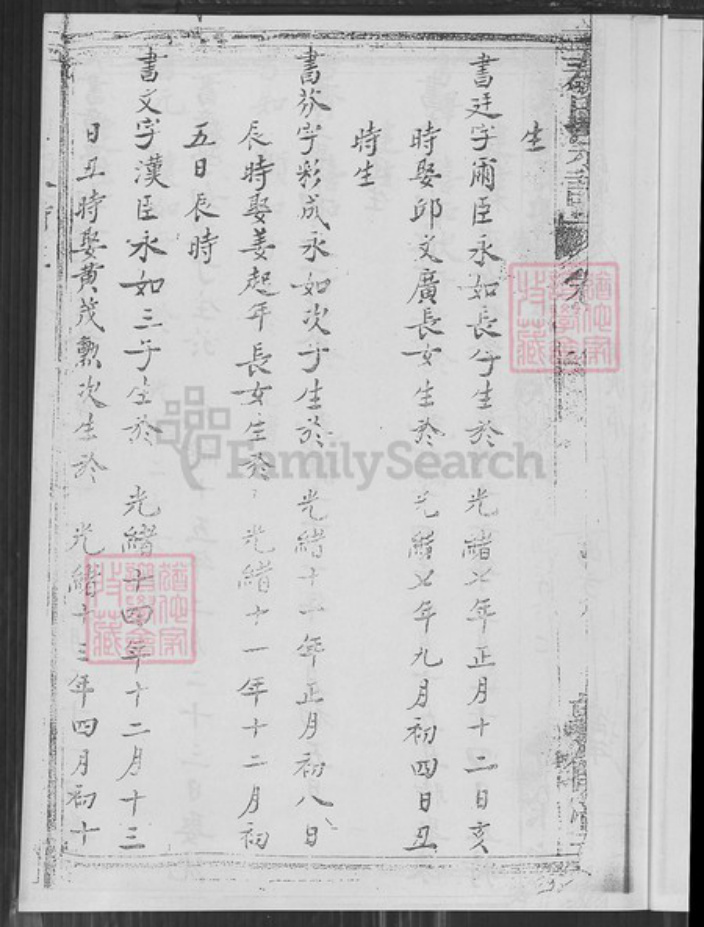 生
書廷字爾臣永如長子生於 光緒七年正月十二日亥
時娶邱文廣長女生於 光緒七年九月初四日丑
時生
書芬字彩成永如次子生於 光緒十一年正月初八日
辰時娶姜起年長女生於 光緒十一年十二月初
五日辰時
書文字漢臣永如三子生於 光緒十四年十二月十三
日丑時娶黃茂勲次生於 光緒十三年四月初十
FamilySearch